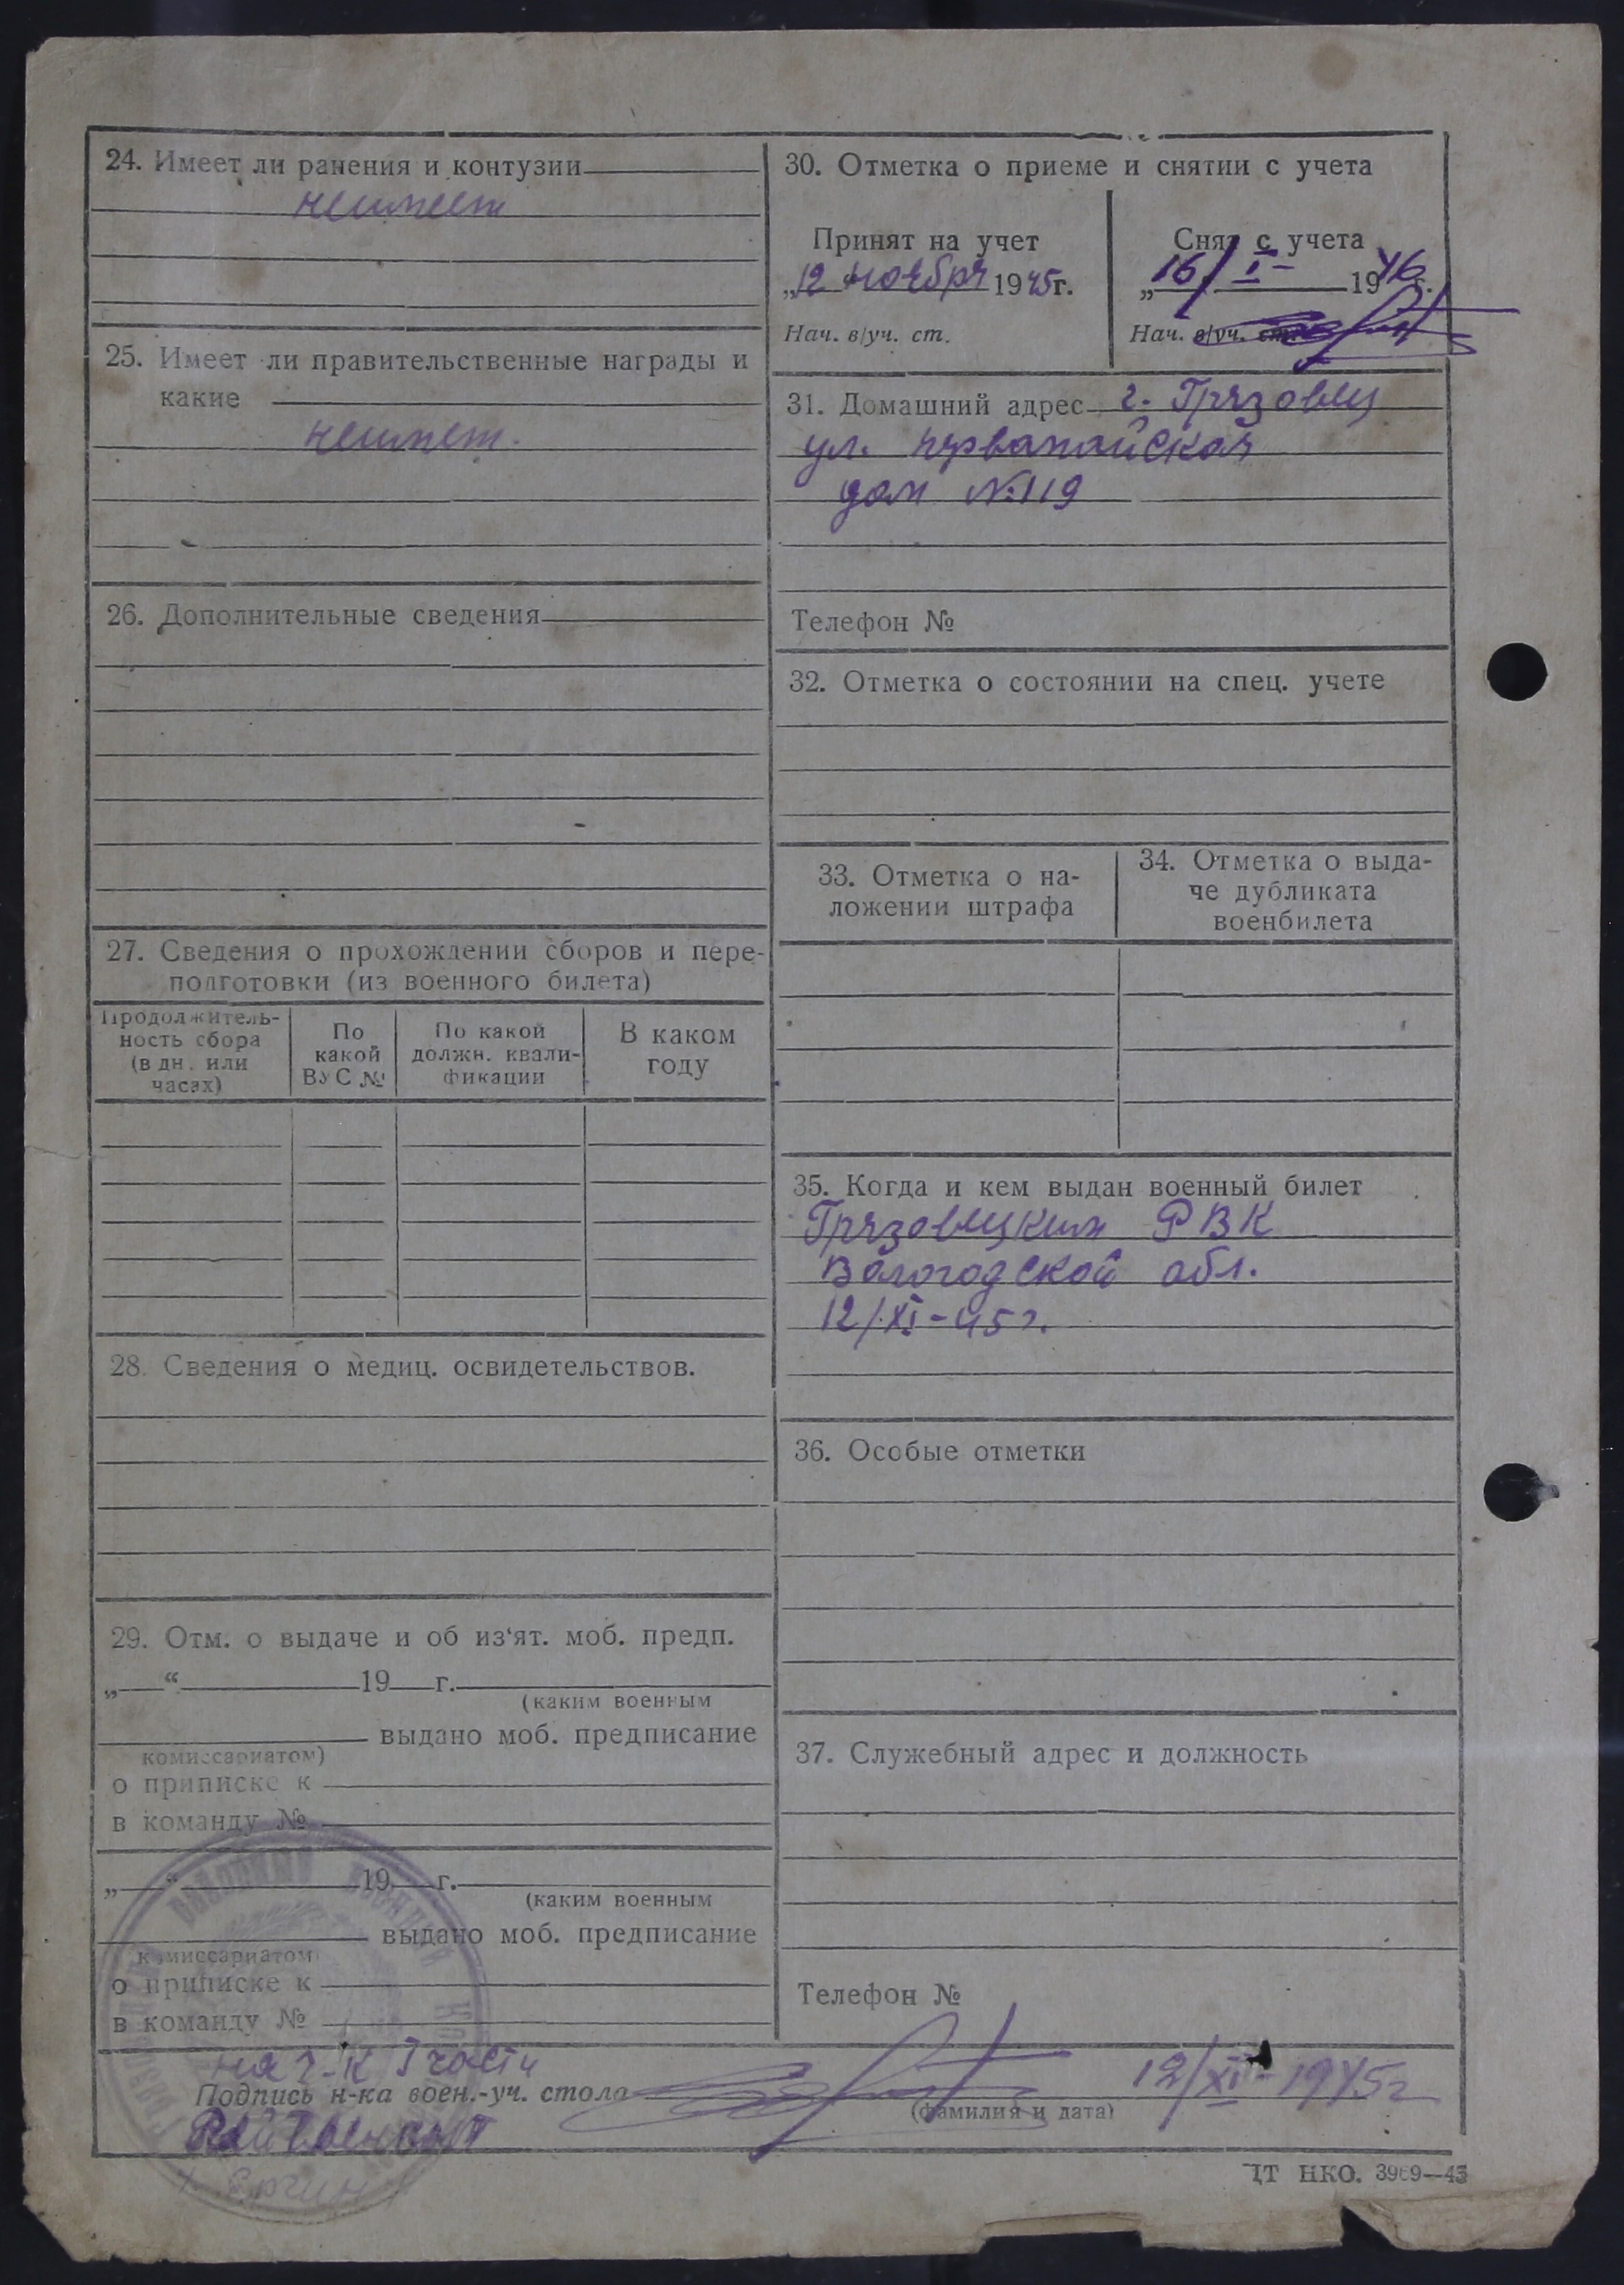 24. Имеет ли ранения и контузии
неимеет
25. Имеет ли правительственные награды и
какие
неимеет.
26. Дополнительные сведения
27. Сведения о прохождении сборов и пере-
подготовки (из военного билета)
Продолжитель-
ность сбора
(в дн. или
часах)
По
какой
ВУС №
По какой
должн. квали-
фикации
В каком
году
28. Сведения о медиц. освидетельствов.
29. Отм. о выдаче и об из‘ят. моб. предп.
„ “ 19 г.
(каким военным
выдано моб. предписание
комиссариатом)
о приписке к
в команду №
„ “ 19 г.
(каким военным
выдано моб. предписание
комиссариатом)
о приписке к
в команду №
30. Отметка о приеме и снятии с учета
Принят на учет
„12 ноября 1945г.
Нач. в/уч. ст.
Снят с учета
„16/I- 1946г.
Нач. в/уч. ст.
31. Домашний адрес г. Грязовец
ул. первамайская
дом №119
Телефон №
32. Отметка о состоянии на спец. учете
33. Отметка о на-
ложении штрафа
34. Отметка о выда-
че дубликата
военбилета
35. Когда и кем выдан военный билет
Грязовецким РВК
Вологодской обл.
12/XI-45г.
36. Особые отметки
37. Служебный адрес и должность
Телефон №
нач-к I части
Подпись н-ка воен.-уч. стола
12/XI-1945г
(фамилия и дата)
Райвоенком
ЦТ НКО. 3969—43